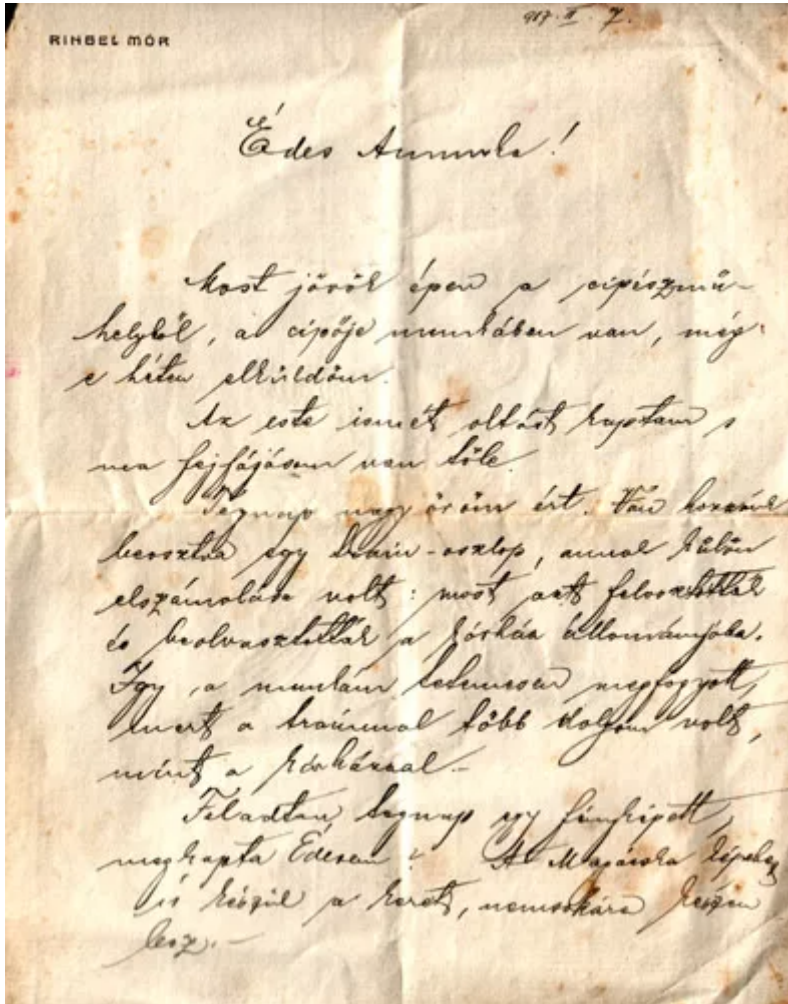 RINGEL MÓR
917. II. 7.
Édes Annuska!
Most jövök épen a cipészmű-
helyből, a cipője munkában van, még
e héten elküldöm.
Az este ismét oltást kaptam s
ma fejfájásom van tőle.
Tegnap nagy öröm ért. Van hozzánk
beosztva egy train-oszlop, annak külön
elszámolása volt: most azt feloszlatták
és beolvasztották a kórház állományába.
Így, a munkám tetemesen megfogyott,
mert a trainnal több dolgom volt,
mint a kórházzal.-
Feladtam tegnap egy fényképett,
megkapta Édesem? A Magácska képéhez
is készül a keret, nemsokára készen
lesz.-